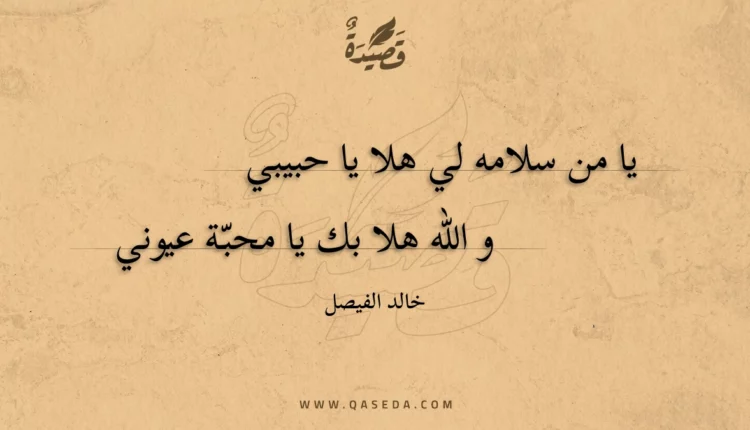 قَصِيْدَةٌ
يا من سلامه لي هلا يا حبيبي
و الله هلا بك يا محبّة عيوني
خالد الفيصل
WWW.QASEDA.COM